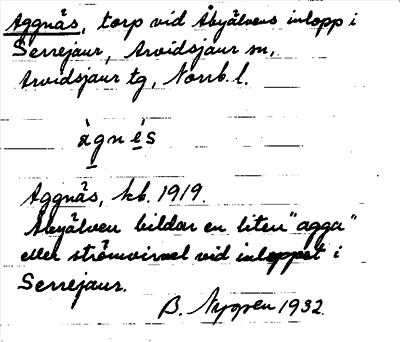 Aggnäs, torp vid Åbyälvens inlopp i
Serrejaur, Arvidsjaur sn,
Arvidsjaur tg, Norrb. l.
àgnès
Aggnäs, kb. 1919.
Åbyälven bildar en liten "agga"
eller strömvirvel vid inloppet i
Serrejaur.
B. Nygren 1932.